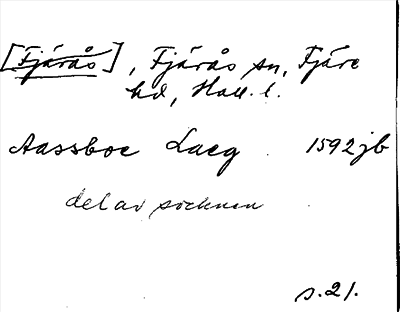 [Fjärås], Fjärås sn, Fjäre
hd, Hall. l.
Aassboe Laeg. 1592 jb
del av socknen
s. 21.